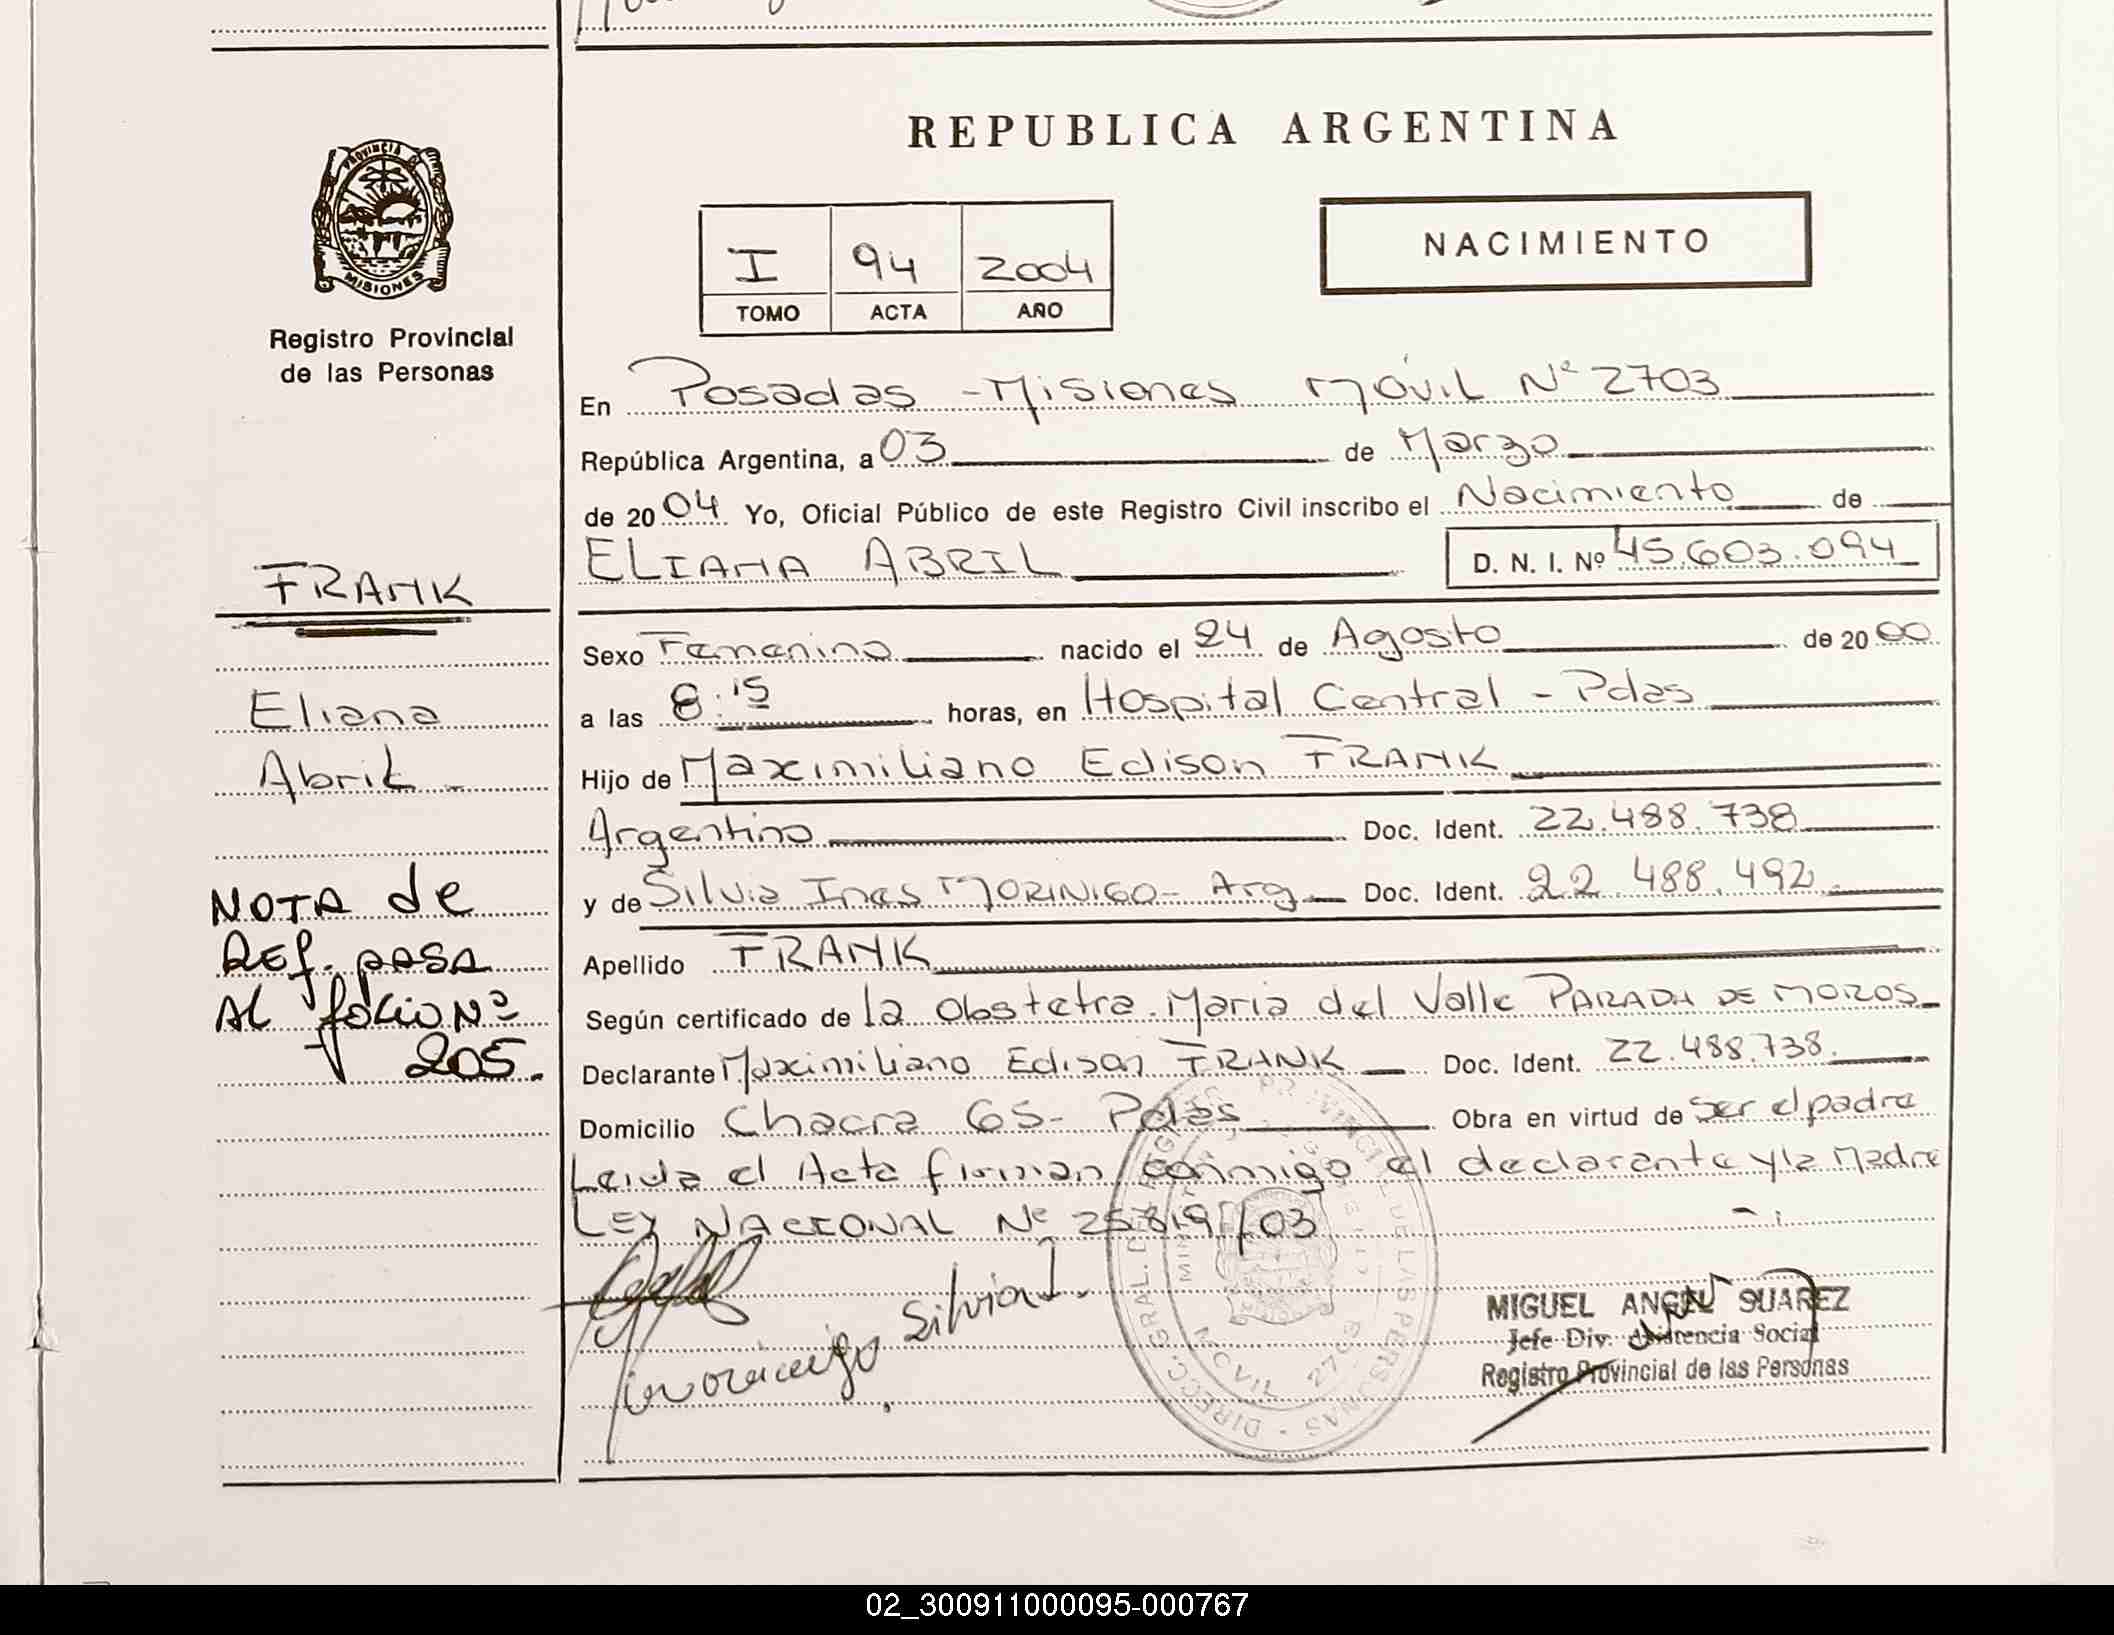 PROVINCIA DE
MISIONES
Registro Provincial
de las Personas
FRANK
Eliana
Abril -
NOTA de
Ref. pasa
Al folio Nº
205.
REPUBLICA ARGENTINA
I 94 2004
TOMO ACTA AÑO
NACIMIENTO
En Posadas - Misiones Móvil Nº 2703
República Argentina, a 03 de Marzo
de 2004 Yo, Oficial Público de este Registro Civil inscribo el Nacimiento de
ELIANA ABRIL D. N. I. Nº 45.603.094
Sexo Femenino nacido el 24 de Agosto de 2000
a las 8:15 horas, en Hospital Central - Pdas
Hijo de Maximiliano Edison FRANK
Argentino Doc. Ident. 22.488.738
y de Silvia Ines MORINIGO - Arg Doc. Ident. 22.488.492
Apellido FRANK
Según certificado de la Obstetra Maria del Valle PARADA DE MOROS
Declarante Maximiliano Edison FRANK Doc. Ident. 22.488.738.
Domicilio Chacra 65 - Pdas Obra en virtud de ser el padre
Leida el Acta firman conmigo el declarante y la Madre
LEY NACIONAL Nº 25.819/03
Morinigo Silvia I.
MIGUEL ANGEL SUAREZ
Jefe Div. Asistencia Social
Registro Provincial de las Personas
DIRECC. GRAL. DE REGISTRO PROVINCIAL DE LAS PERSONAS
MOVIL 2703
02_300911000095-000767